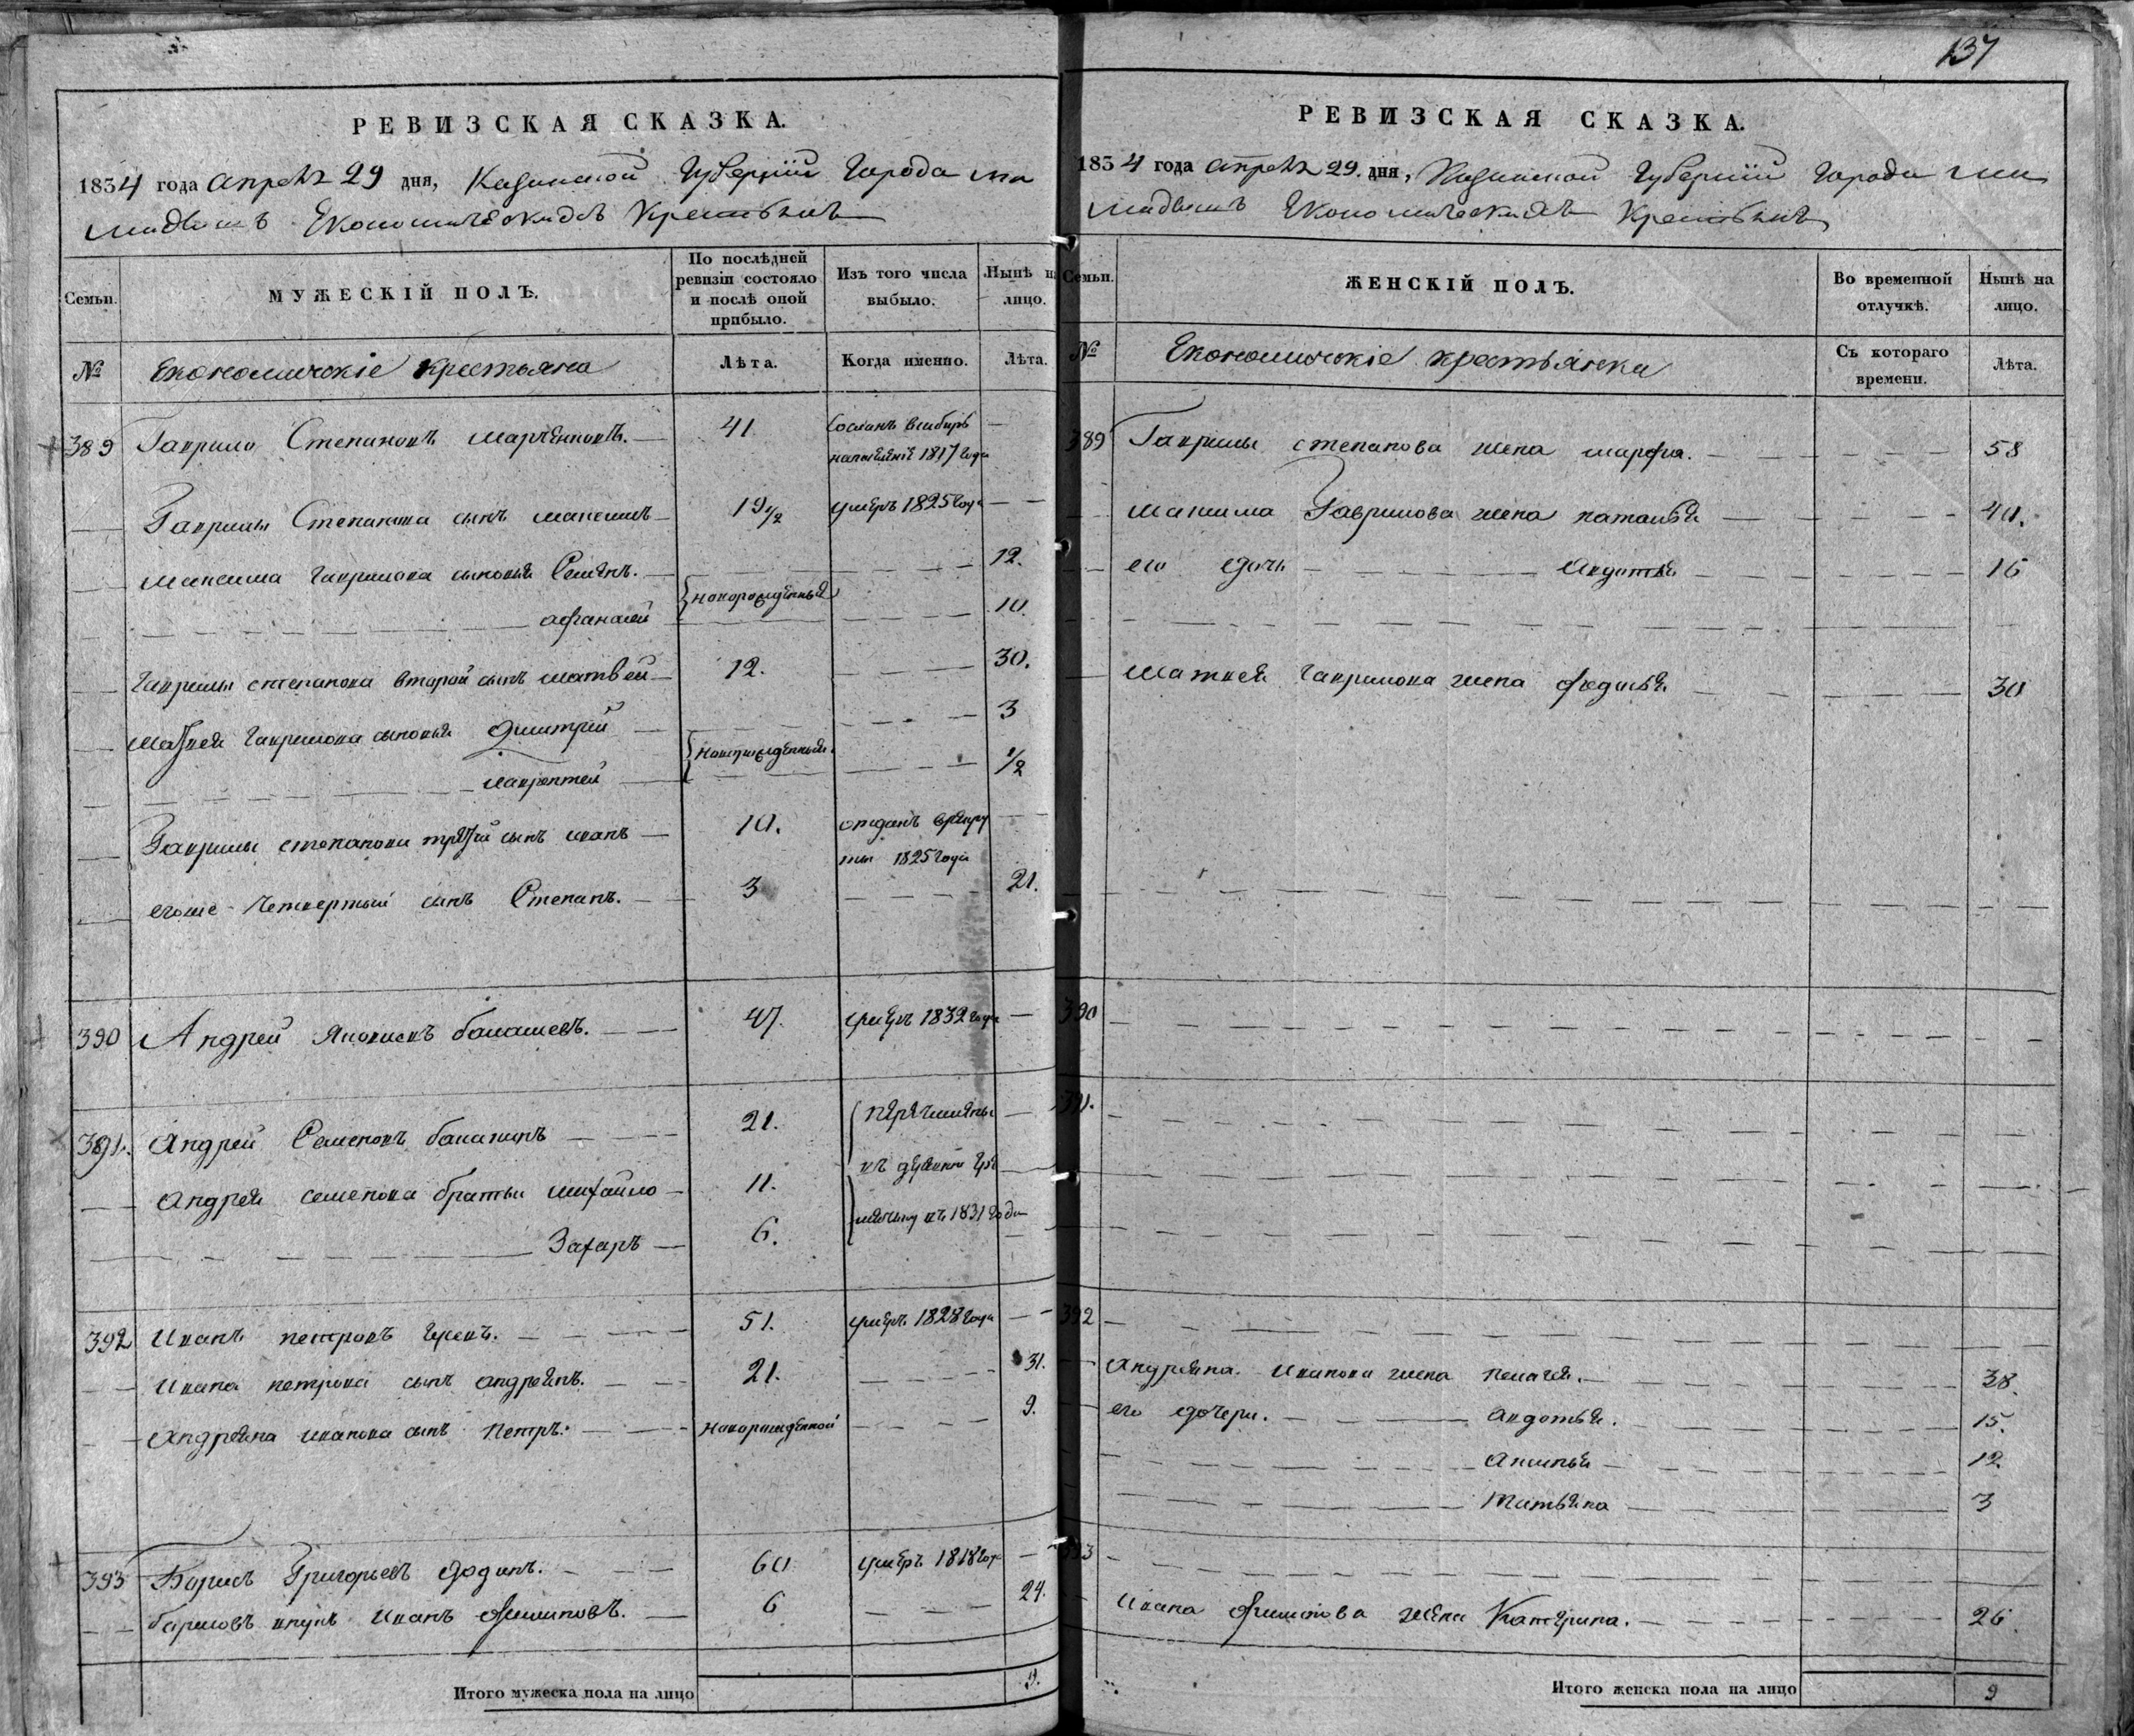 137
РЕВИЗСКАЯ СКАЗКА.
1834 года апреля 29 дня, Казанской Губернiи Города ма
мадышъ Економическихъ Крестьянъ
Семьи.
МУЖЕСКIЙ ПОЛЪ.
По послѣдней ревизiи состояло и послѣ оной прибыло.
Изъ того числа выбыло.
Нынѣ на лицо.
№
Економическiе крестьяна
Лѣта.
Когда именно.
Лѣта.
389 Гаврило Степановъ 41. сосланъ всибирь —
1817 года
Гаврилы Степанова сынъ максимъ 19 1/2 умеръ 1825 года —
максима гаврилова сыновья Семенъ. 12.
новорожденныя
афанасей 10.
гаврилы степанова второй сынъ матвей 12. 30.
матвея гаврилова сыновья Дмитрий 3
новорожденныя
лаврентей 1/2
Гаврилы степанова третiй сынъ иванъ 10. отданъ врекру
ты 1825 года
егоже четвертый сынъ Степанъ. 3 21.
390 Андрей балашевъ. 47. умеръ 1832 года —
391. андрей Семеновъ 21. перечислены —
андрея семенова братьи михайло 11.
въ 1831 года
Захаръ 6.
392 иванъ петровъ 51. умеръ 1828 года —
ивана петрова сынъ андреянъ. 21. 31.
андреяна иванова сынъ петръ. новорожденной 9.
393 Борисъ Григорьевъ 60 умеръ 1818 года —
борисовъ внукъ иванъ филиповъ. 6 24.
Итого мужеска пола на лицо 9.
РЕВИЗСКАЯ СКАЗКА.
1834 года апреля 29. дня, Казанской Губернiи города ма
мадышъ Економическихъ Крестьянъ
Семьи.
ЖЕНСКIЙ ПОЛЪ.
Во временной отлучкѣ.
Нынѣ на лицо.
№
Економическiе крестьянки
Съ котораго времени.
Лѣта.
389 Гаврилы степанова жена марфа. 58
максима Гаврилова жена наталья 40.
его дочь авдотья 16
матвея гаврилова жена федосья 30
390
391.
392
андреяна иванова жена пелагея. 38.
его дочери. авдотья. 15.
аксинья 12
татьяна 3
393
ивана филипова жена Катерина. 26.
Итого женска пола на лицо 9